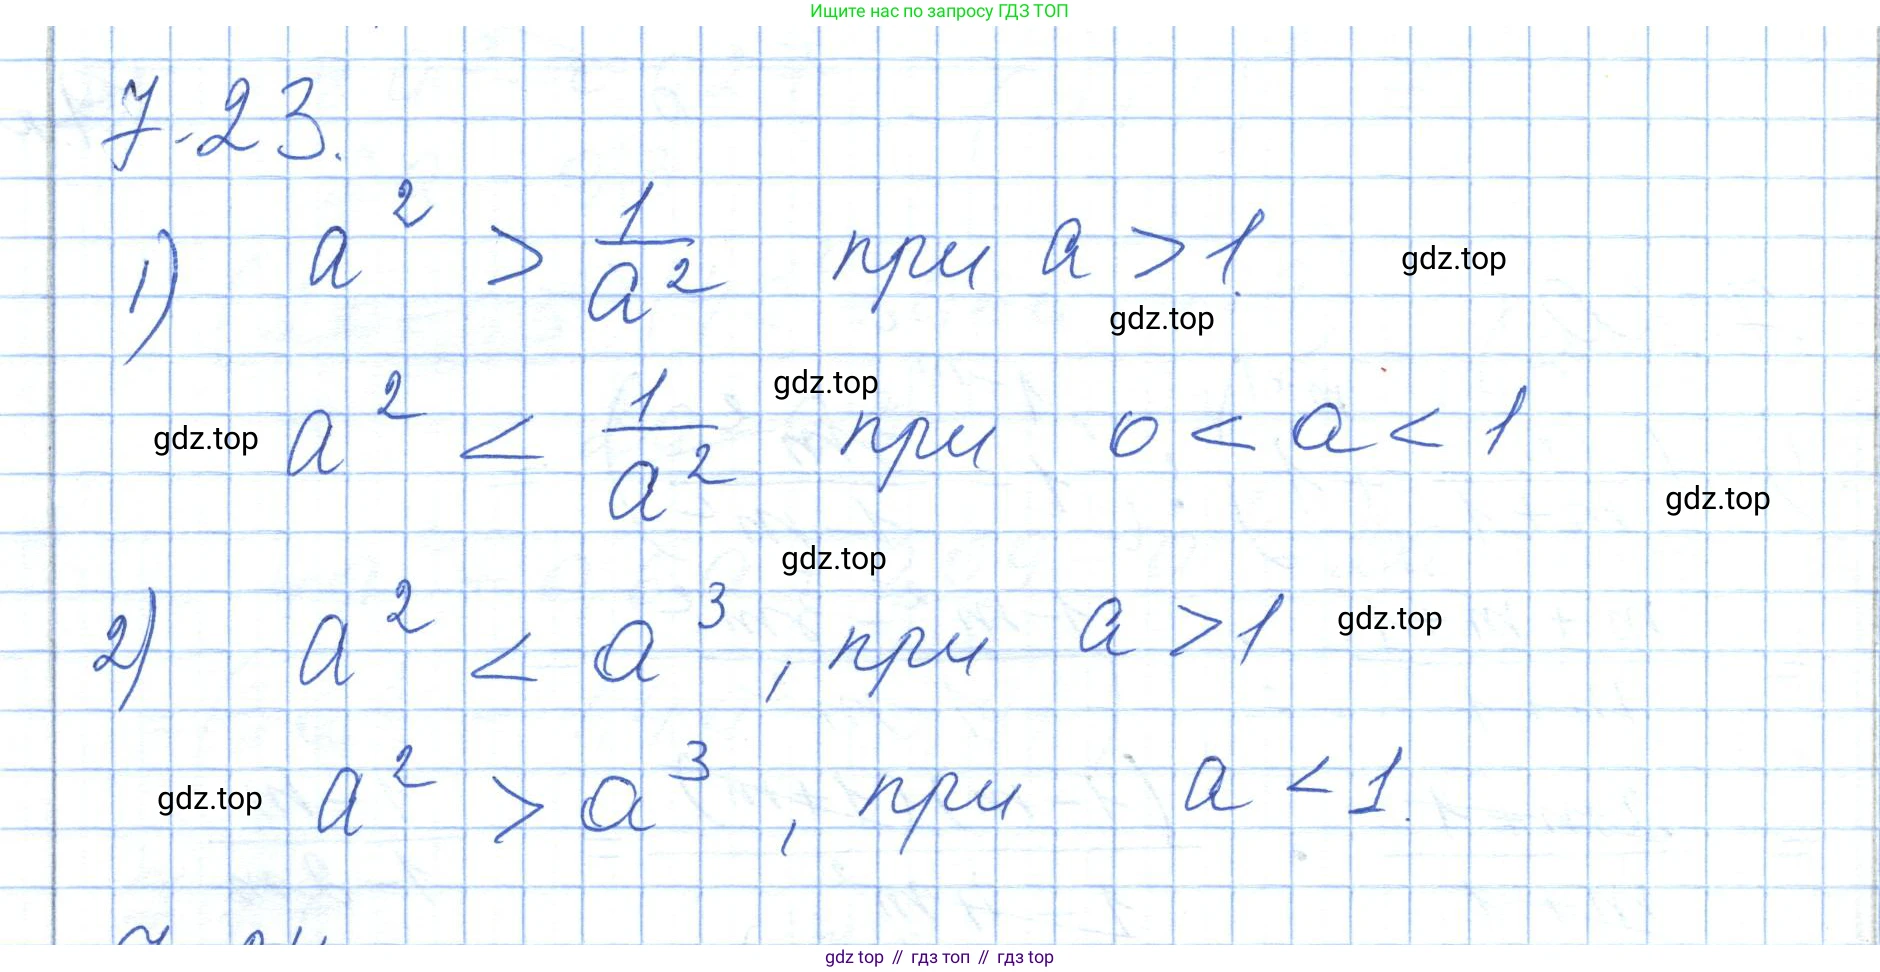 Ищите нас по запросу ГДЗ ТОП
7.23.
1) a² > 1/a² при a > 1.
gdz.top
gdz.top
gdz.top
gdz.top a² < 1/a² при 0 < a < 1
gdz.top
gdz.top
2) a² < a³, при a > 1 gdz.top
gdz.top a² > a³, при a < 1.
gdz.top // гдз топ // гдз top